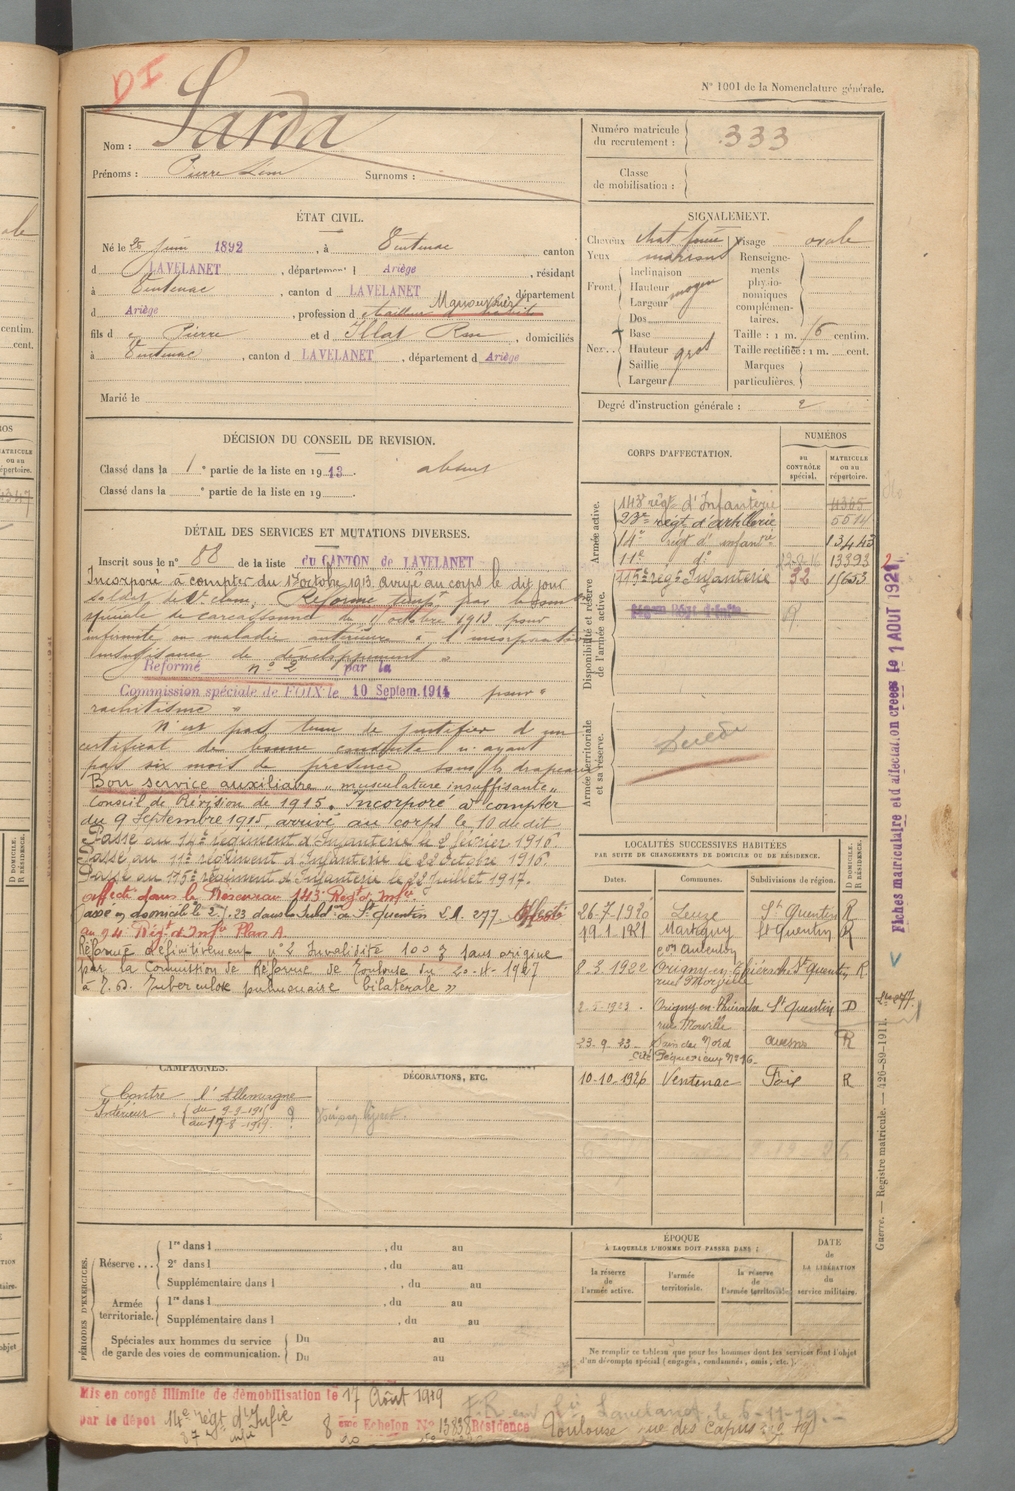 DI
N° 1001 de la Nomenclature générale.
Nom : Sarda
Prénoms : Pierre Surnoms :
Numéro matricule du recrutement : 333
Classe de mobilisation :
ÉTAT CIVIL.
Né le 20 juin 1892, à Ventenac canton
d LAVELANET, département d Ariège, résidant
à Ventenac, canton d LAVELANET, département
d Ariège, profession d Manouvrier
fils d e Pierre et d Illat Rose, domiciliés
à Ventenac, canton d LAVELANET, département d Ariège
Marié le
SIGNALEMENT.
Cheveux chat foncé Visage ovale
Yeux marrons
Front. Inclinaison
Hauteur moyen
Largeur
Nez.. Dos
Base
Hauteur gros
Saillie
Largeur
Renseignements physionomiques complémentaires.
Taille : 1 m. centim.
Taille rectifiée : 1 m. cent.
Marques particulières.
Degré d'instruction générale : 2
DÉCISION DU CONSEIL DE REVISION.
Classé dans la 1e partie de la liste en 1913. absent
Classé dans la e partie de la liste en 19
DÉTAIL DES SERVICES ET MUTATIONS DIVERSES.
Inscrit sous le n° 88 de la liste du CANTON de LAVELANET
Incorporé à compter du octobre 1913. Arrivé au corps le dit jour
soldat de 2e classe, Réformé par la commission
spéciale de Carcassonne du octobre 1913 pour
infirmité ou maladie antérieure à l'incorporation
"insuffisance de développement"
Réformé n° 2 par la
Commission spéciale de FOIX le 10 Septem. 1914 pour "
rachitisme "
N'est pas tenu de justifier d'un
certificat de bonne conduite n'ayant
pas six mois de présence sous les drapeaux
Bon service auxiliaire "musculature insuffisante"
Conseil de Révision de 1915. Incorporé à compter
du 9 Septembre 1915, arrivé au corps le 10 du dit
Passé au 14e régiment d'Infanterie le 2 février 1916.
Passé au 11e régiment d'Infanterie le 22 Octobre 1916.
Passé au 115e régiment d'Infanterie le 22 Juillet 1917.
affecté dans la Réserve au 143e Régt d'Infie.
passé en domicile le 2.5.23 dans la Subdon de St Quentin S.A. 277 Affecté
au 94 Régt d'Infie Plan A
Réformé définitivement n° 2 Invalidité 100% sans origine
par la Commission de Réforme de Toulouse du 1927
à P.D. Tuberculose pulmonaire bilatérale "
CORPS D'AFFECTATION.
NUMÉROS
AU CONTRÔLE spécial.
MATRICULE ou au répertoire.
Armée active.
143e régt d'Infanterie 4305
23e régt d'artillerie 5514
14e régt d'infantrie 13443
11e do 13393
115e régt Infanterie 32 15653
Disponibilité et réserve de l'armée active.
Armée territoriale et sa réserve.
Décédé
LOCALITÉS SUCCESSIVES HABITÉES
PAR SUITE DE CHANGEMENTS DE DOMICILE OU DE RÉSIDENCE.
Dates. Communes. Subdivisions de région. D DOMICILE. R RÉSIDENCE.
26-7-1920 Leuze St Quentin R
19.1.1921 Martigny St Quentin R
8.3.1922 Origny-en-Thiérache St Quentin R
2.5.1923. Origny-en-Thiérache St Quentin D
23.9.23 Sains du Nord Avesnes R
10-10-1926 Ventenac Foix R
CAMPAGNES.
Contre l'Allemagne
Intérieur : du 9-9-1915
au 17-8-1919
DÉCORATIONS, ETC.
PÉRIODES D'EXERCICES.
Réserve ... 1re dans l , du au
2e dans l , du au
Supplémentaire dans l , du au
Armée territoriale. 1re dans l , du au
Supplémentaire dans l , du au
Spéciales aux hommes du service de garde des voies de communication. Du au
Du au
ÉPOQUE
À LAQUELLE L'HOMME DOIT PASSER DANS :
la réserve de l'armée active.
l'armée territoriale.
la réserve de l'armée territoriale.
DATE de LA LIBÉRATION du service militaire.
Ne remplir ce tableau que pour les hommes dont les services font l'objet
d'un décompte spécial (engagés, condamnés, omis, etc.).
Fiches matriculaire et d'affectation créées le 1 AOUT 1921
Guerre. — Registre matricule. — 426-89-1911.
Mis en congé illimité de démobilisation le 17 Août 1919
par le dépôt 14e régt d'Infie 8 ème Echelon N° 13838 Résidence Toulouse rue des